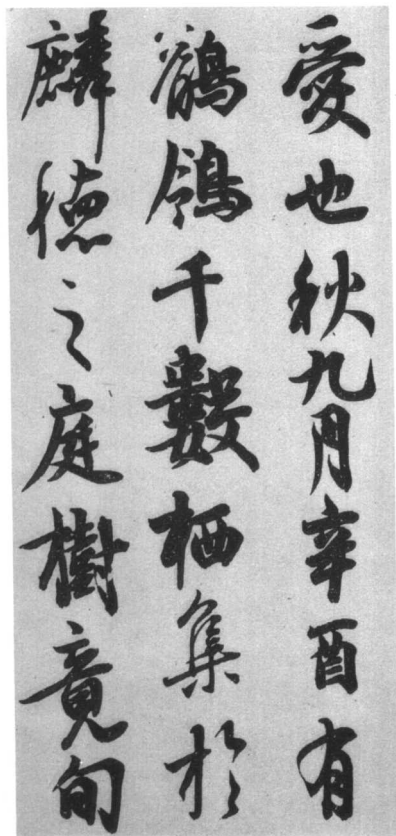 愛也秋九月辛酉有
鶺鴒千數栖集於
麟德之庭樹竟旬